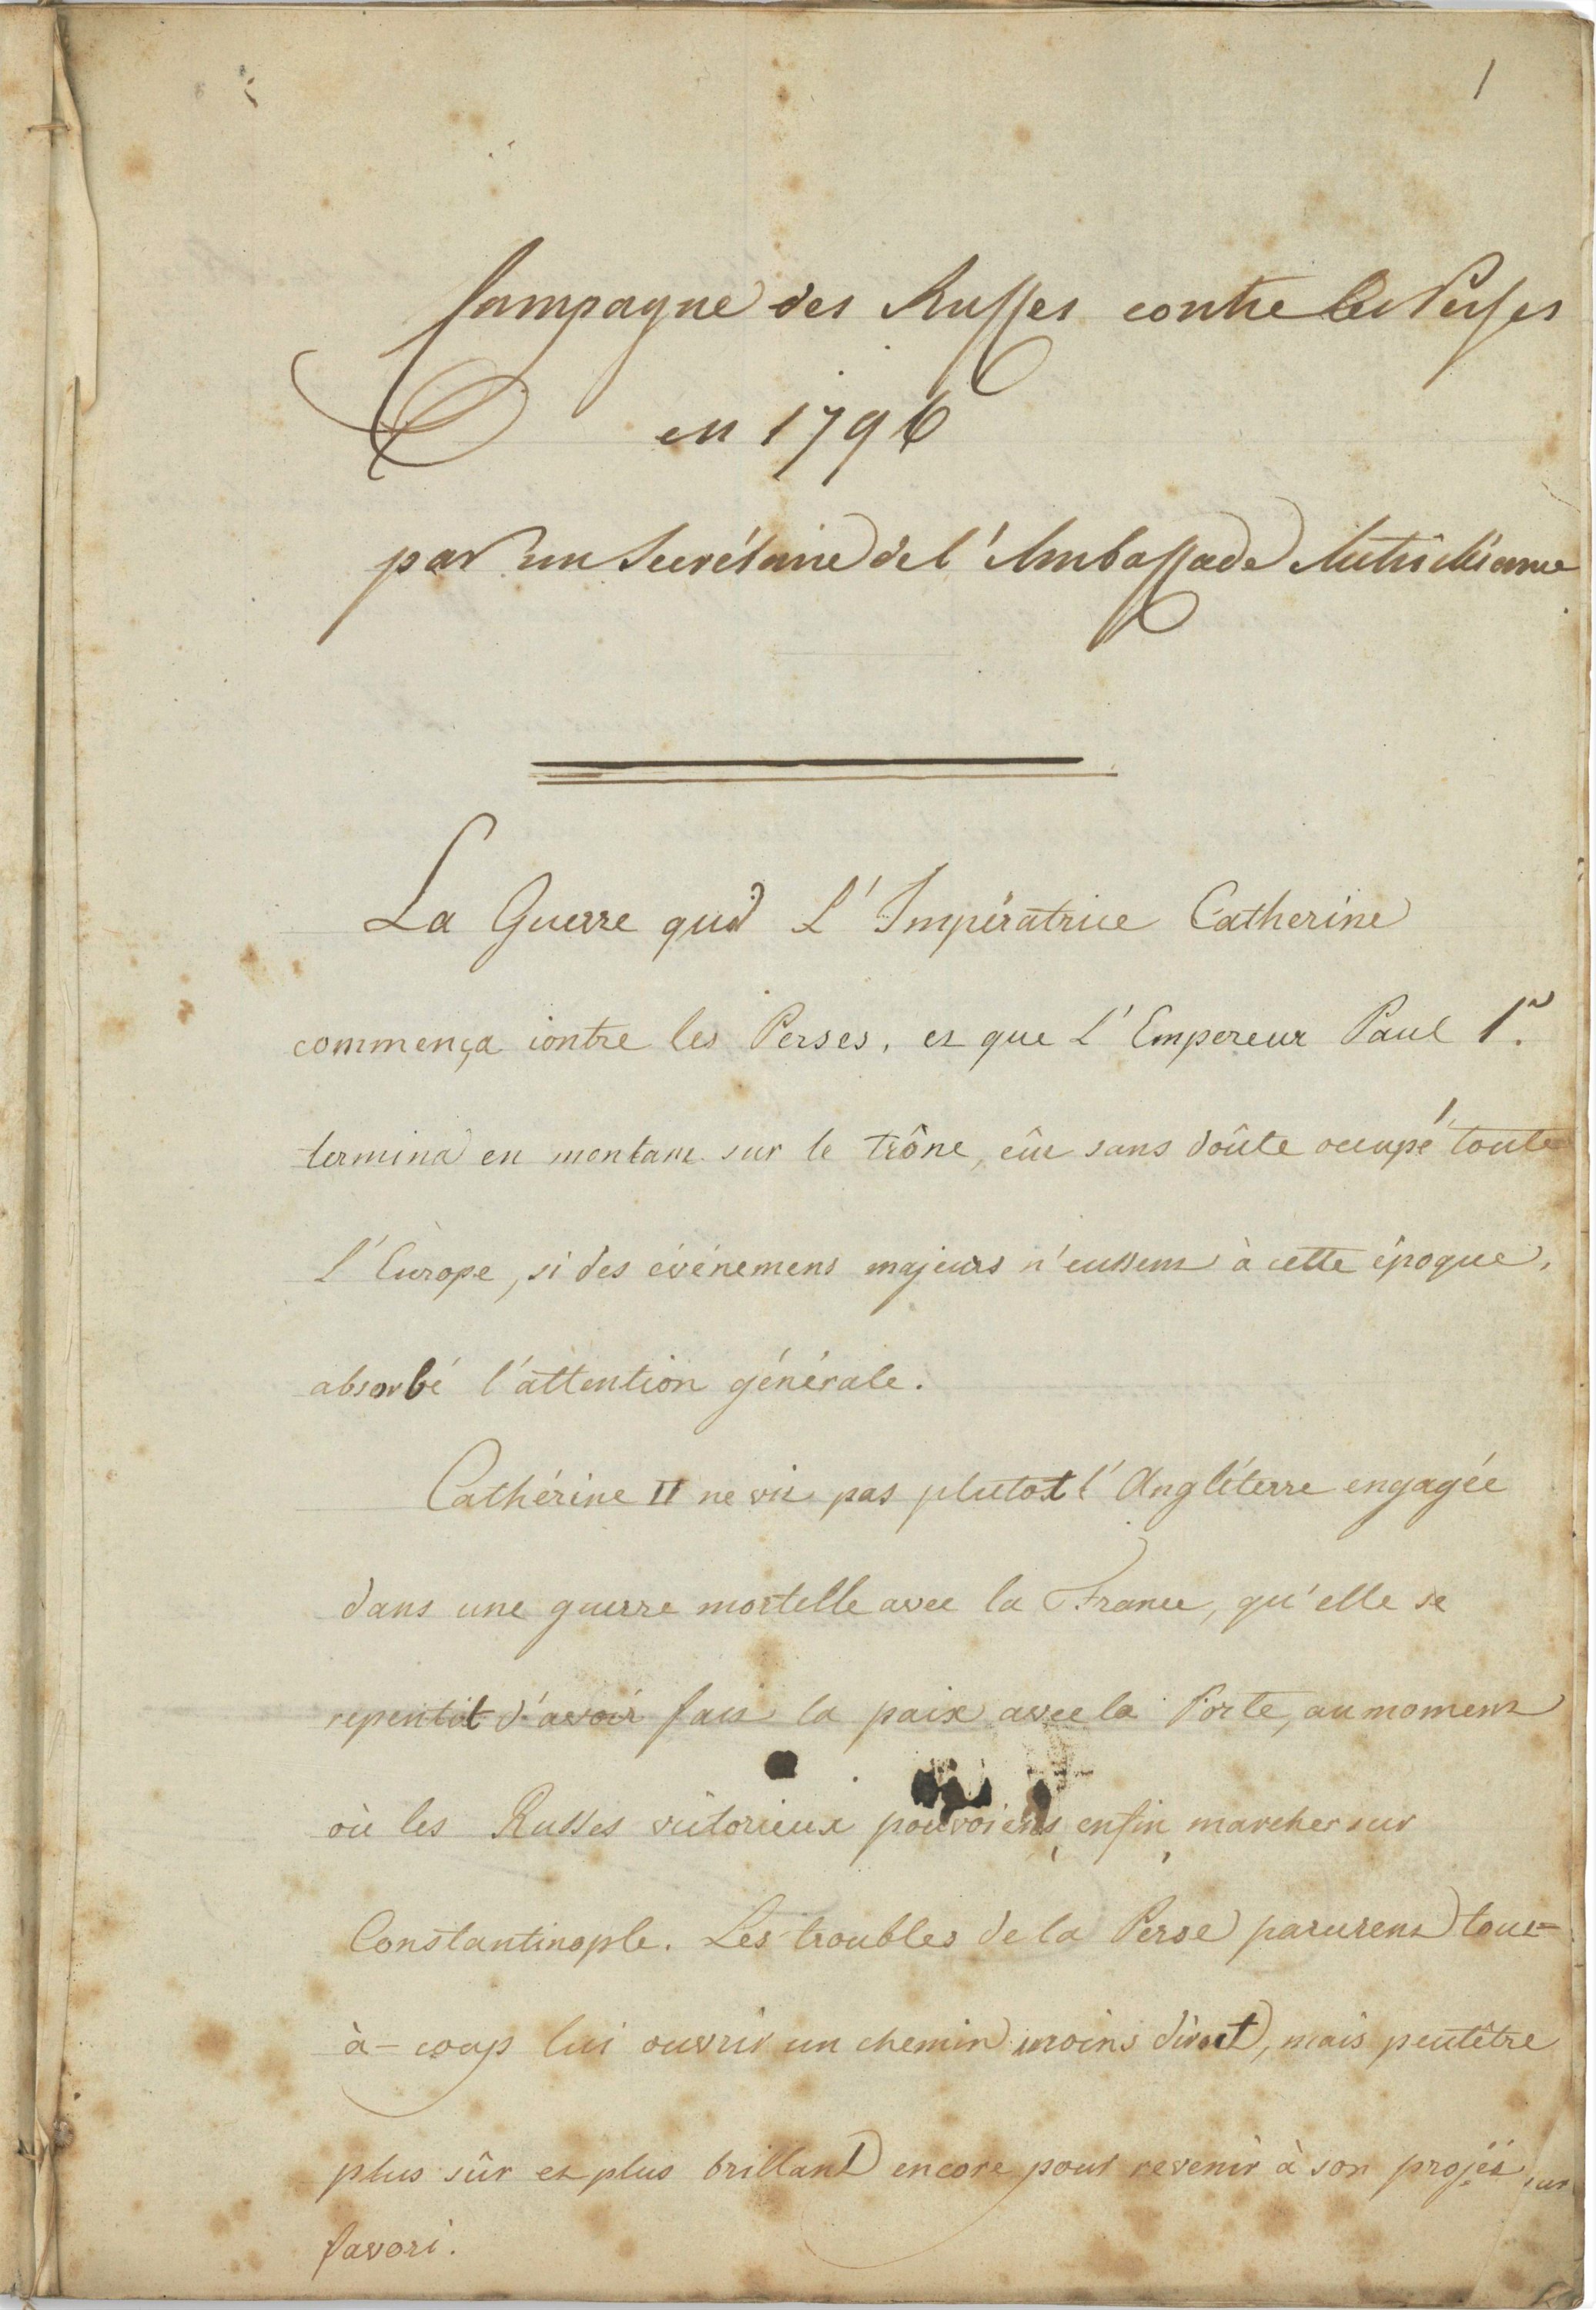 1
Campagne des Russes contre les Perses
en 1796
par un Secrétaire de l'Ambassade Autrichienne
La Guerre que L'Impératrice Catherine
commença contre les Perses, et que L'Empereur Paul 1.er
termina en montant sur le trône, eût sans doûte occupé toute
l'Europe, si des événemens majeurs n'eussent à cette époque,
absorbé l'attention générale.
Cathérine II ne vit pas plutot l'Angléterre engagée
dans une guerre mortelle avec la France, qu'elle se
repentit d'avoir fait la paix avec la Porte, au moment
où les Russes victorieux pouvoient enfin marcher sur
Constantinople. Les troubles de la Perse parurent tout=
à-coup lui ouvrir un chemin moins direct, mais peutêtre
plus sûr et plus brillant encore pour revenir à son projet
favori.